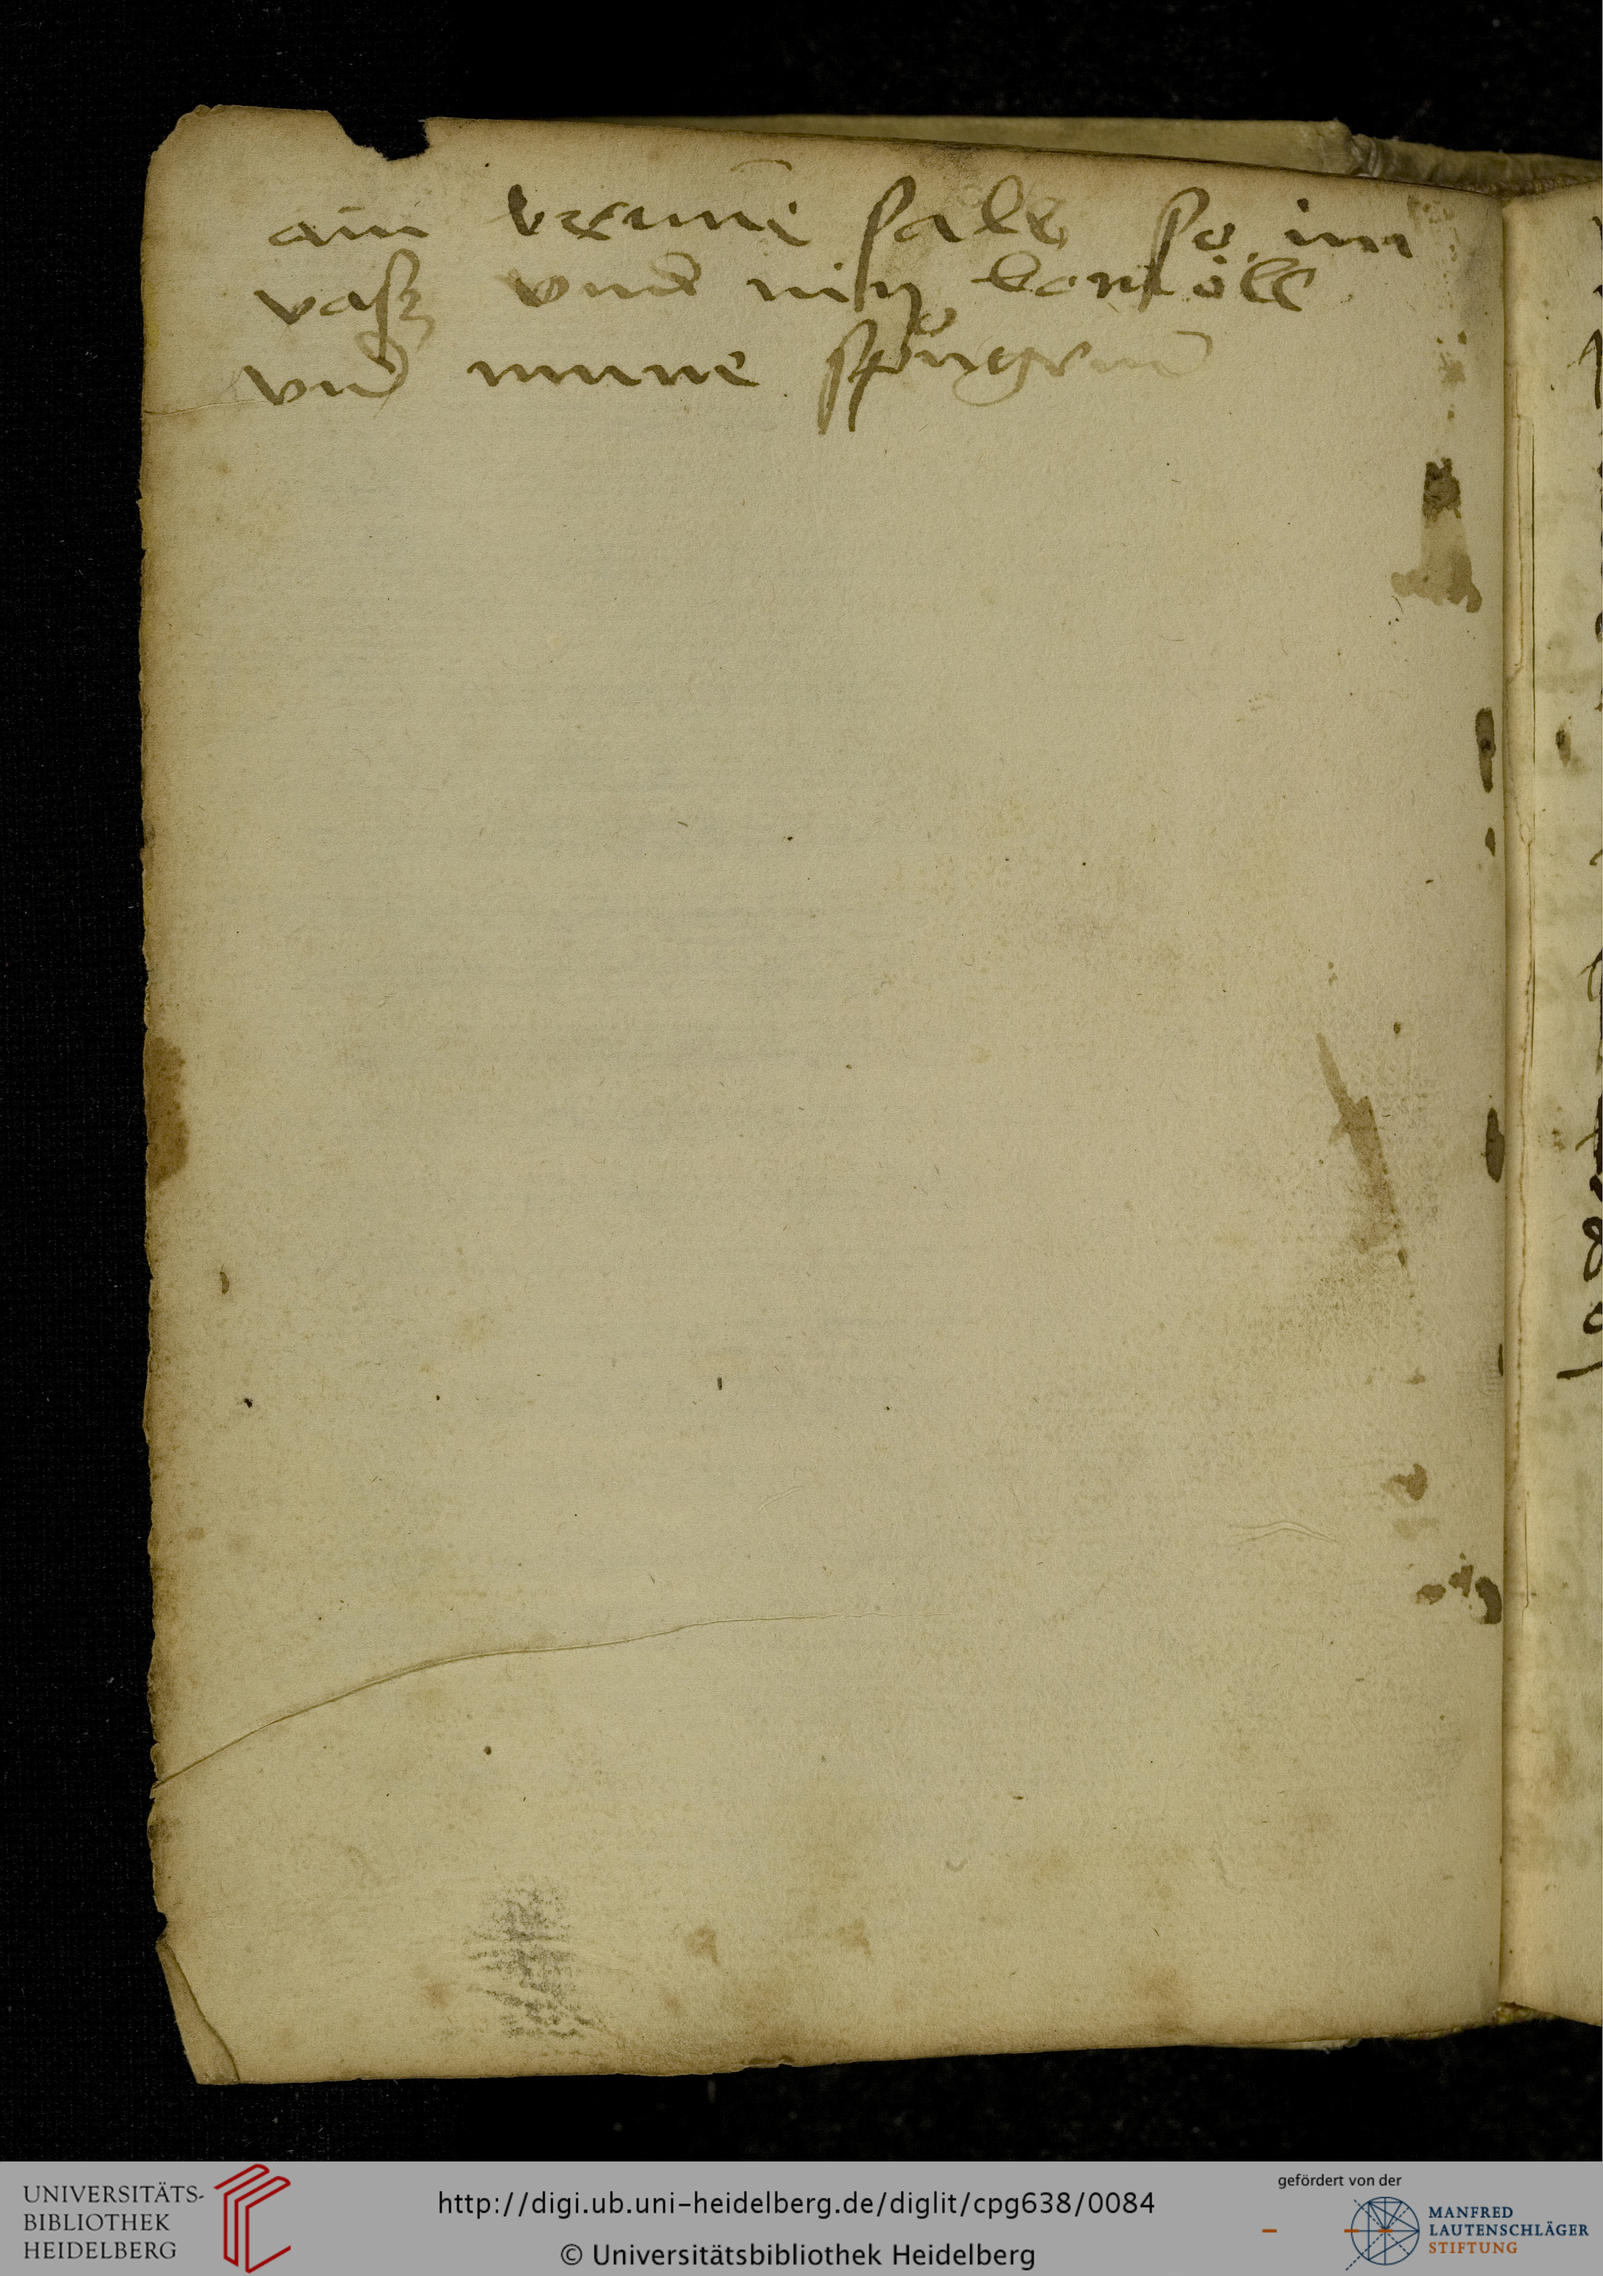 ain salb so im
vasß vnd nim lorböll
vnd nime
UNIVERSITÄTS-
BIBLIOTHEK
HEIDELBERG
http://digi.ub.uni-heidelberg.de/diglit/cpg638/0084
© Universitätsbibliothek Heidelberg
gefördert von der
MANFRED
LAUTENSCHLÄGER
STIFTUNG